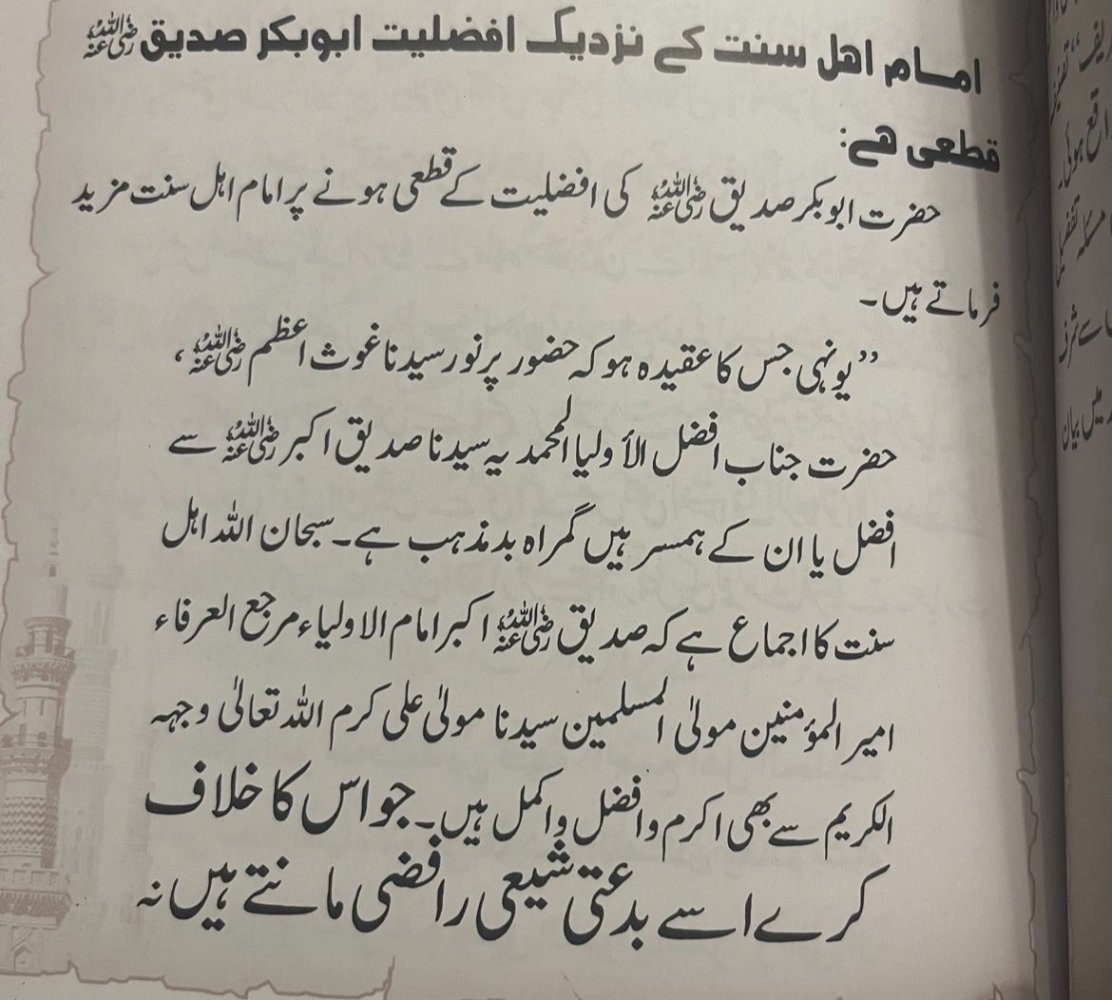 امام اهل سنت کے نزدیک افضلیت ابوبکر صدیق رضی اللہ عنہ
قطعی هے:
حضرت ابوبکر صدیق رضی اللہ عنہ کی افضلیت کے قطعی ہونے پر امام اہل سنت مزید
فرماتے ہیں۔
”یونہی جس کا عقیدہ ہو کہ حضور پر نور سیدنا غوث اعظم رضی اللہ عنہ،
حضرت جناب افضل الأولیا المحمدیہ سیدنا صدیق اکبر رضی اللہ عنہ سے
افضل یا ان کے ہمسر ہیں گمراہ بدمذہب ہے۔ سبحان اللہ اہل
سنت کا اجماع ہے کہ صدیق رضی اللہ عنہ اکبر امام الاولیاء مرجع العرفاء
امیر المؤمنین مولیٰ المسلمین سیدنا مولیٰ علی کرم اللہ تعالیٰ وجہہ
الکریم سے بھی اکرم و افضل و اکمل ہیں۔ جو اس کا خلاف
کرے اسے بدعتی شیعی رافضی مانتے ہیں نہ
قع ہوئی۔
مسئلہ تفضیل
سے شرف
میں بیان